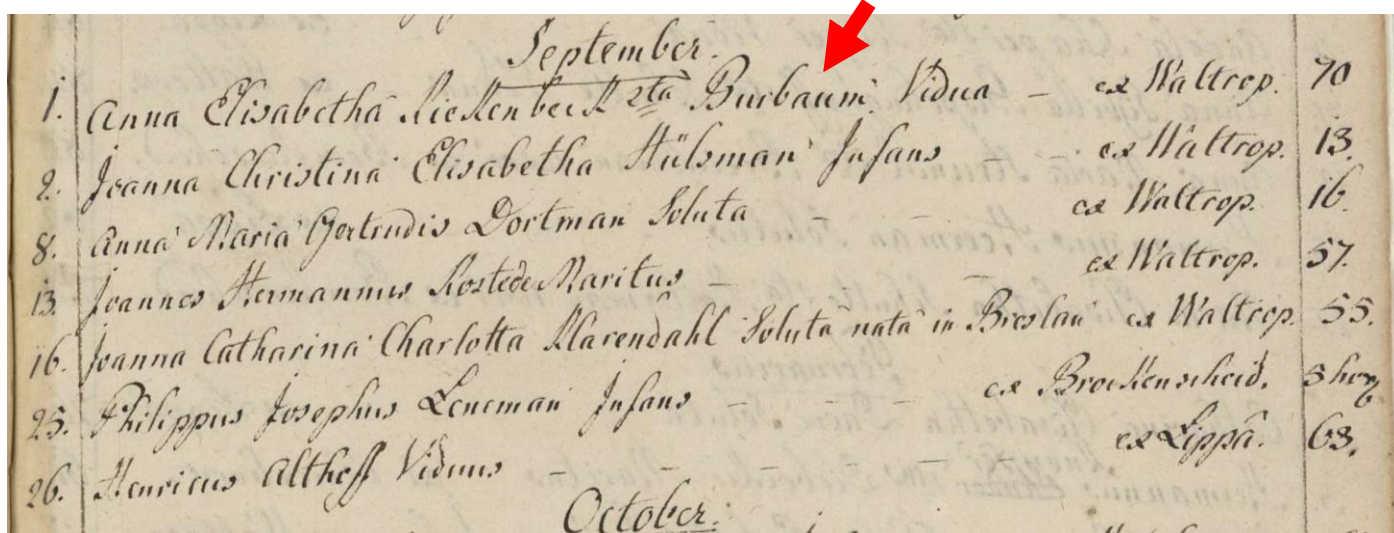 September.
1. Anna Elisabetha Rickenbeck 2ta Burbaum Vidua – ex Waltrop. 70
2. Joanna Christina Elisabetha Hülsman Infans ex Waltrop. 13.
8. Anna Maria Gertrudis Dortman Soluta ex Waltrop. 16.
13. Joannes Hermannus Rostede Maritus – ex Waltrop. 57.
16. Joanna Catharina Charlotta Klarendahl Soluta nata in Breslau ex Waltrop. 55.
25. Philippus Josephus Leneman Infans – – ex Brockenscheid. 3 hor
26. Henricus Althoff Viduus – – – – ex Lippa. 63.
October.